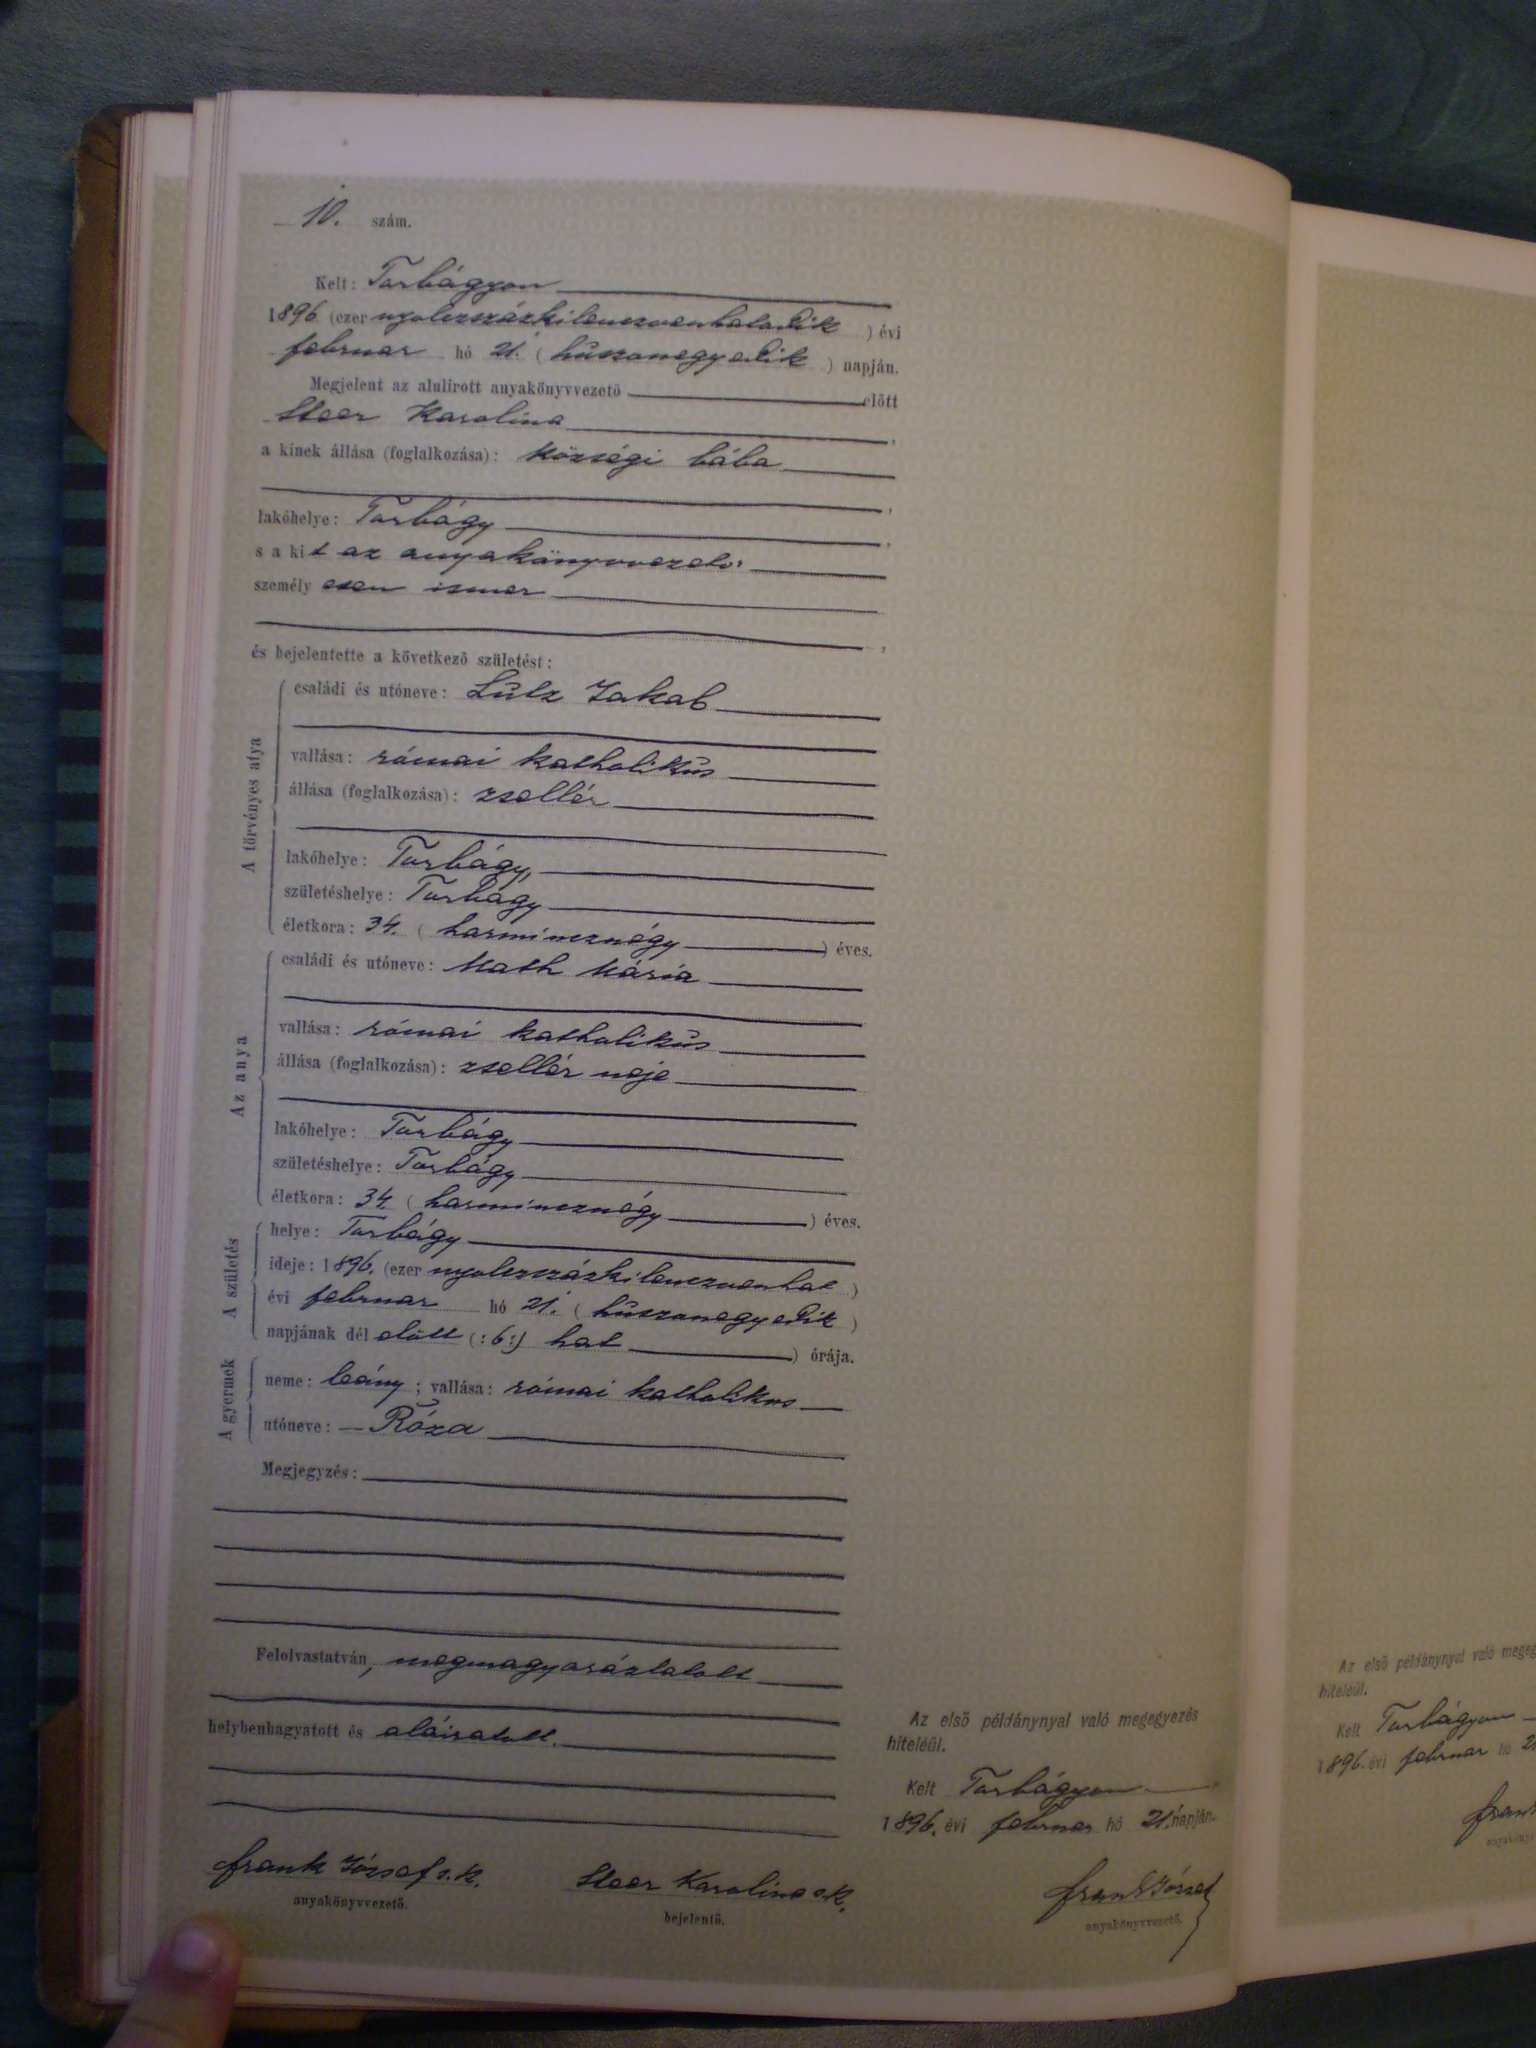 10. szám.
Kelt: Torbágyon
1896 (ezer nyolczszázkilenczvenhatodik) évi
februar hó 21. (huszonegyedik) napján.
Megjelent az alulírott anyakönyvvezető előtt
Steer Karolina,
a kinek állása (foglalkozása): községi bába
,
lakóhelye: Torbágy,
s a kit az anyakönyvvezető
személyesen ismer
,
és bejelentette a következő születést:
A törvényes atya
családi és utóneve: Lutz Jakab
vallása: római katholikus
állása (foglalkozása): zsellér
lakóhelye: Torbágy,
születéshelye: Torbágy
életkora: 34. (harmincznégy) éves.
Az anya
családi és utóneve: Math Mária
vallása: római katholikus
állása (foglalkozása): zsellér neje
lakóhelye: Torbágy
születéshelye: Torbágy
életkora: 34. (harmincznégy) éves.
A születés
helye: Torbágy
ideje: 1896. (ezer nyolczszázkilenczvenhat)
évi februar hó 21. (huszonegyedik)
napjának dél előtt (:6:) hat) órája.
A gyermek
neme: leány; vallása: római katholikus
utóneve: – Róza
Megjegyzés:
Felolvastatván, megmagyaráztatott
helybenhagyatott és aláiratott.
Frank József s.k.
anyakönyvvezető.
Steer Karolina s.k.
bejelentő.
Az első példánynyal való megegyezés
hiteléül.
Kelt Torbágyon
1896. évi februar hó 21. napján.
Frank József
anyakönyvvezető.
Az első példánynyal való megeg
hiteléül.
Kelt Torbágyon
1896. évi februar hó 2
Frank
anyakönyv